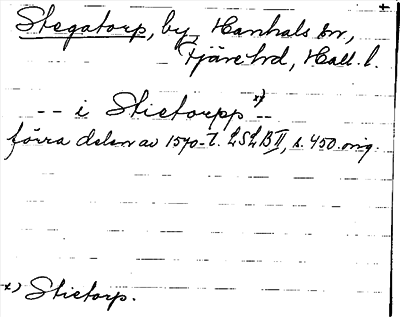 Stegatorp, by, Hanhals sn,
Fjäre hd, Hall. l.
-- i Stietorpp x) --
förra delen av 1570-t. LSLB II, s. 450. orig.
x) Stietorp.